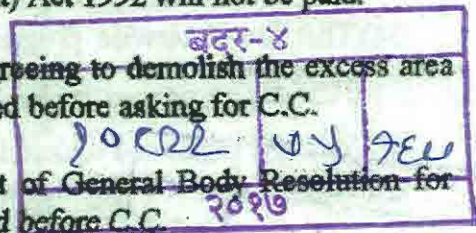 Act 1992 will not be paid.
बदर-४
reeing to demolish the excess area
ed before asking for C.C.
t of General Body Resolution for
d before C.C.
२०१७